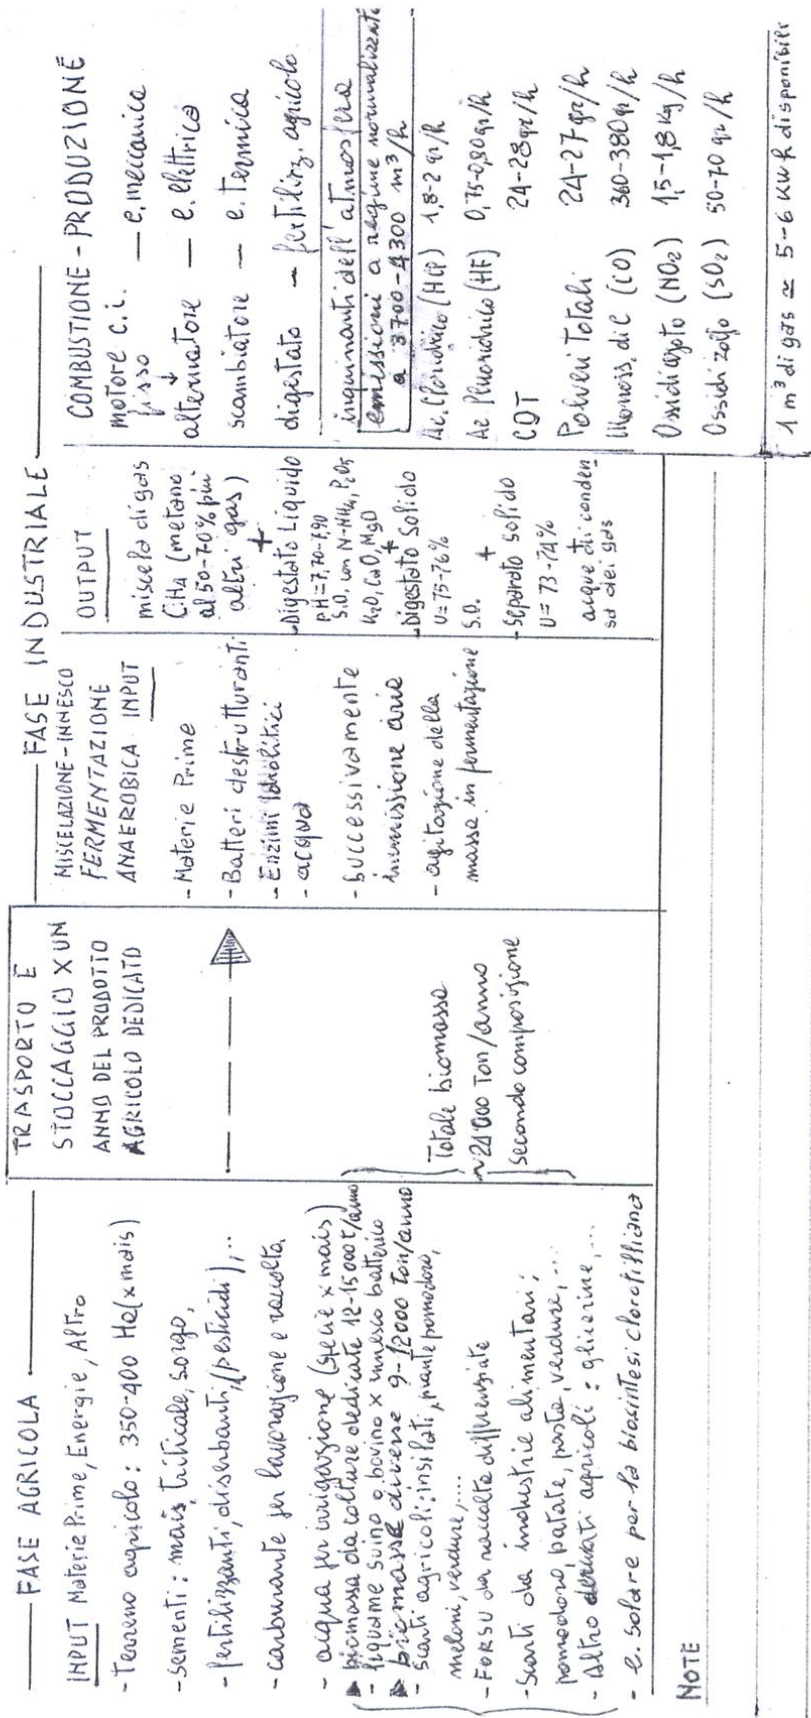 FASE AGRICOLA
INPUT Materie Prime, Energie, Altro
- Terreno agricolo: 350-400 Ha (x mais)
- sementi: mais, triticale, sorgo,
- fertilizzanti, diserbanti, (pesticidi), ..
- carburante per lavorazione e raccolta
- acqua per irrigazione (specie x mais)
▶ biomassa da colture dedicate 12-15000 t/anno
- liquame suino o bovino x innesco batterico
▶ biomasse diverse 9-12000 Ton/anno
- scarti agricoli: insilati, piante pomodoro,
meloni, verdure, ....
- FORSU da raccolta differenziata
- Scarti da industrie alimentari:
pomodoro, patate, pasta, verdure, ...
- Altro derivati agricoli: glicerine, ...
- e. solare per la biosintesi clorofilliana
TRASPORTO E
STOCCAGGIO X UN
ANNO DEL PRODOTTO
AGRICOLO DEDICATO
Totale biomassa
~21000 Ton/anno
secondo composizione
FASE INDUSTRIALE
MISCELAZIONE-INNESCO
FERMENTAZIONE
ANAEROBICA INPUT
- Materie Prime
- Batteri destrutturanti
- Enzimi idrolitici
- acqua
- successivamente
immissione aria
- agitazione della
massa in fermentazione
OUTPUT
miscela di gas
CH4 (metano
al 50-70% più
altri gas)
+
- Digestato Liquido
pH=7,70-7,90
S.O. con N-NH4, P2O5
K2O, CaO, MgO
+
- Digestato Solido
U=75-76%
S.O. +
- Separato solido
U=73-74%
+
acque di conden
sa dei gas
COMBUSTIONE-PRODUZIONE
motore c.i. — e. meccanica
fisso
↓
alternatore — e. elettrica
scambiatore — e. termica
digestato — fertilizz. agricolo
inquinanti dell'atmosfera
emissioni a regime normalizzate
a 3700-4300 m³/h
Ac. Cloridrico (HCl) 1,8-2 gr/h
Ac. Fluoridrico (HF) 0,75-0,80 gr/h
COT 24-28 gr/h
Polveri Totali 24-27 gr/h
Monoss. di C (CO) 360-380 gr/h
Ossidi azoto (NO2) 1,5-1,8 Kg/h
Ossidi zolfo (SO2) 50-70 gr/h
1 m³ di gas ≃ 5-6 KWh disponibili
NOTE